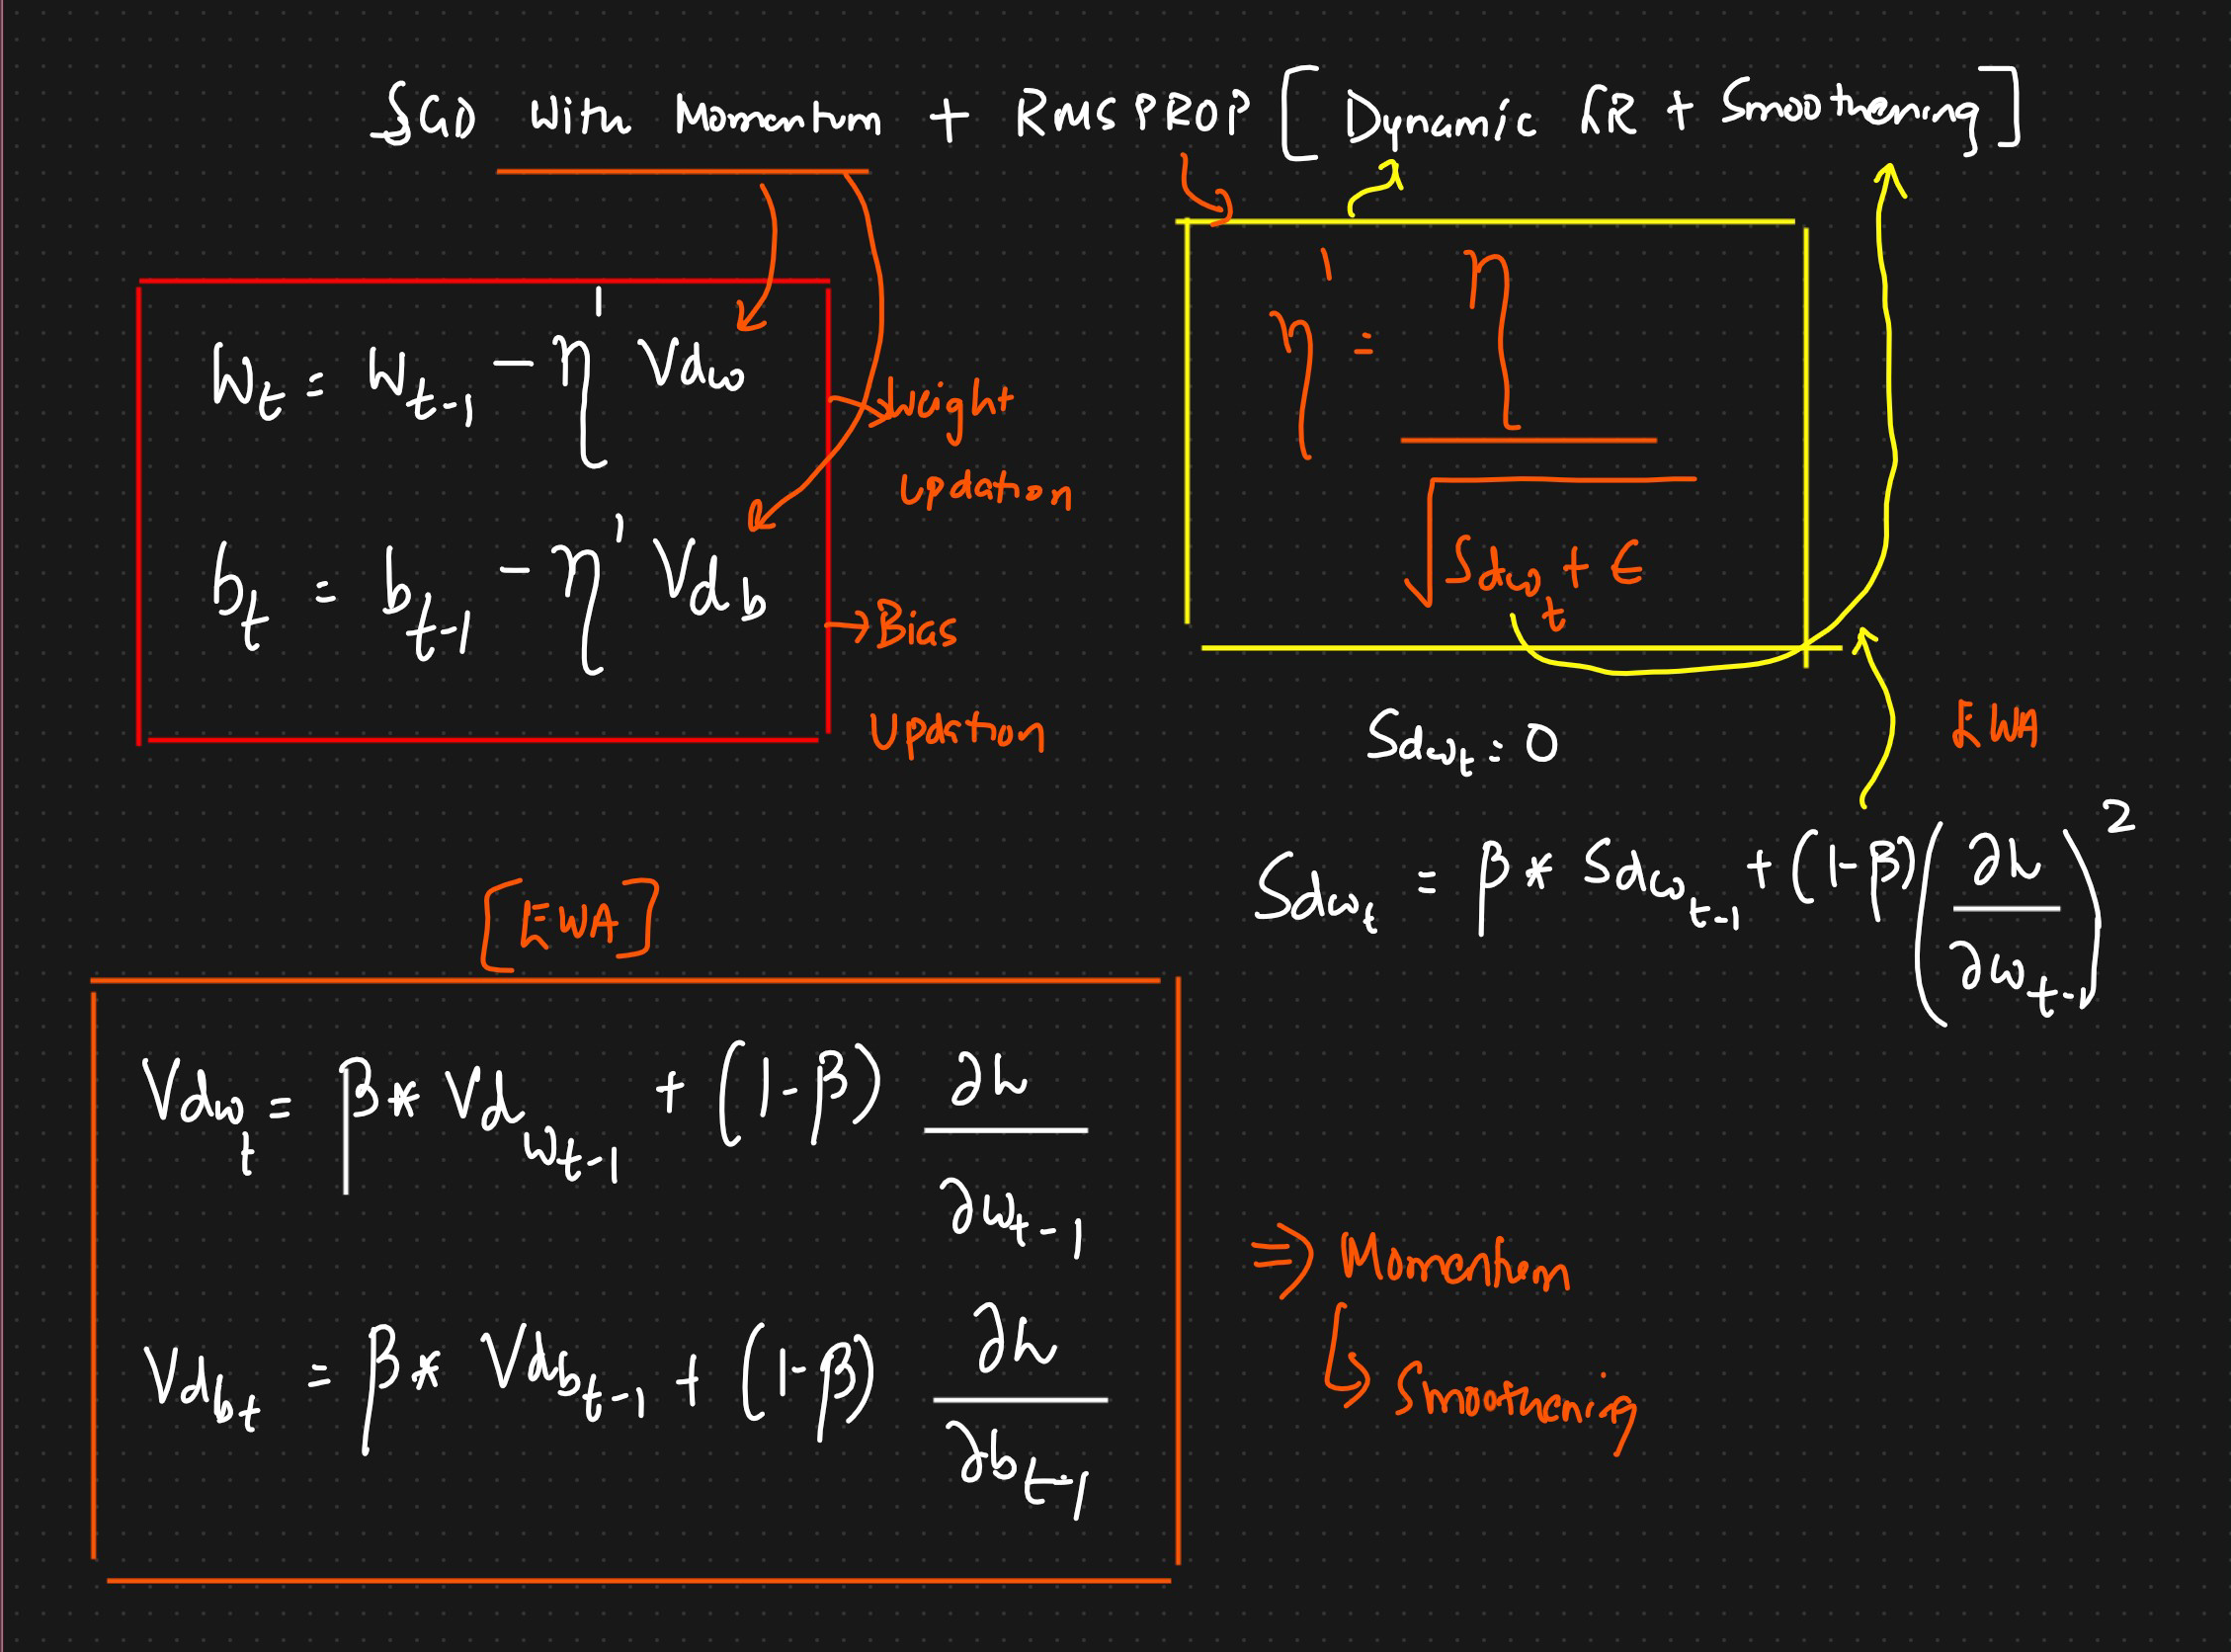 SGD With Momentum + RMSPROP [Dynamic LR + Smoothening]
W_t = W_{t-1} - η' Vdω
b_t = b_{t-1} - η' Vd_b
Weight
Updation
Bias
Updation
η' = η / √(Sdω_t + ϵ)
Sdω_t = 0
EWA
Sdω_t = β * Sdω_{t-1} + (1-β)(∂L/∂ω_{t-1})²
[EWA]
Vdω_t = β * Vd_{ω_{t-1}} + (1-β) ∂L/∂ω_{t-1}
Vd_{b_t} = β * Vd_{b_{t-1}} + (1-β) ∂L/∂b_{t-1}
⇒ Momentum
↳ Smoothening